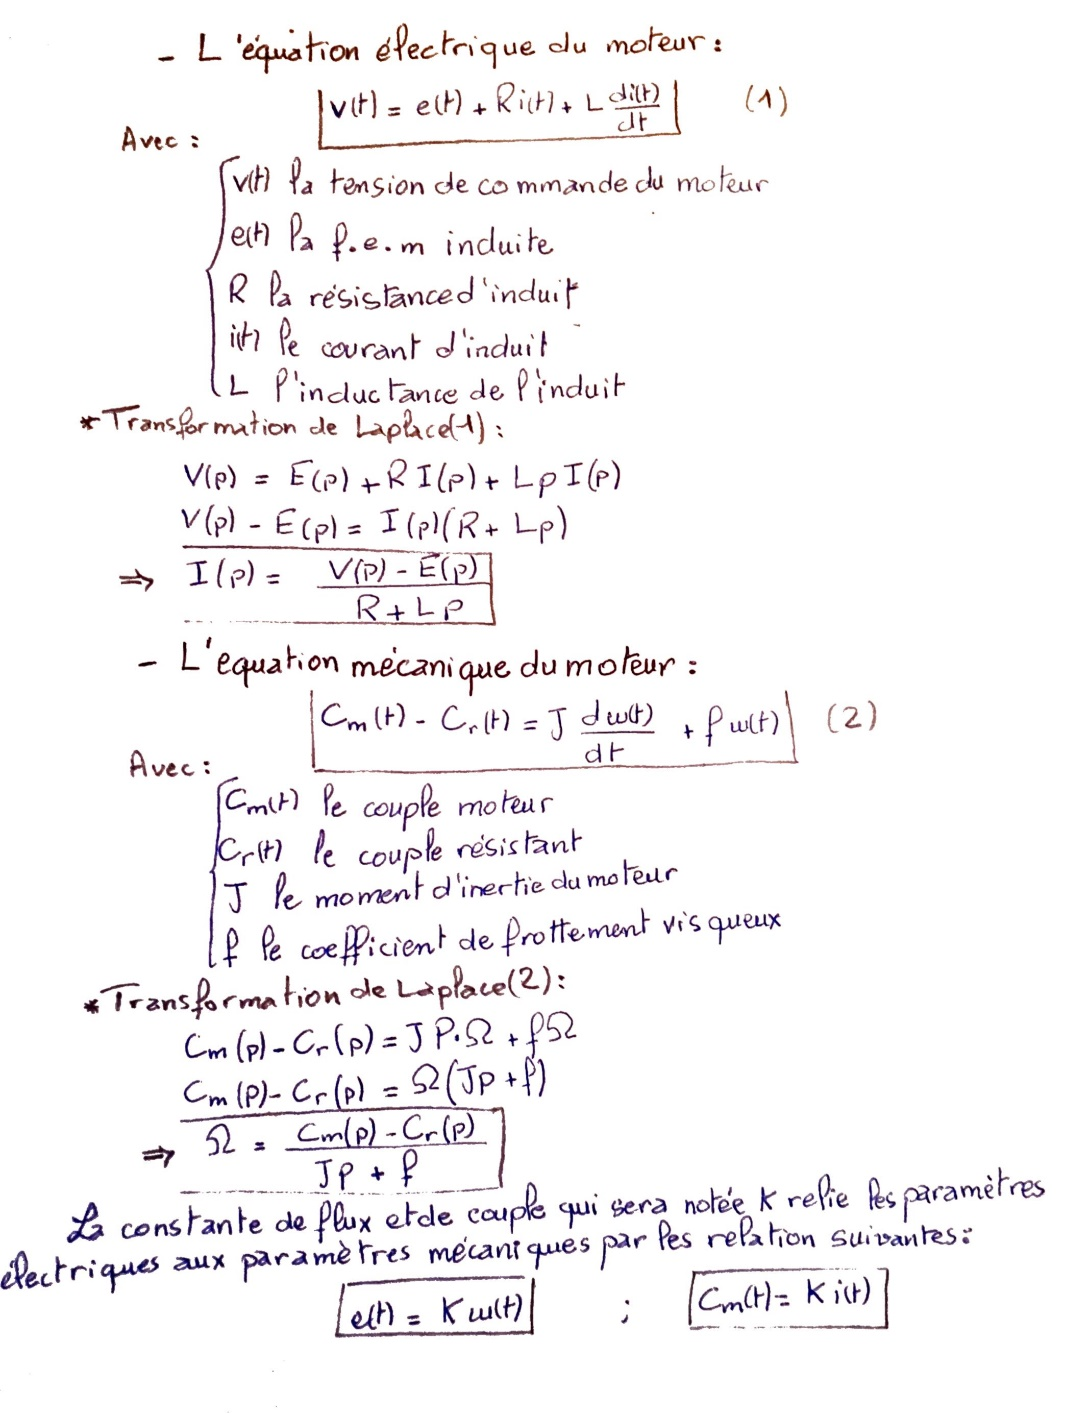 - L'équation électrique du moteur :
v(t) = e(t) + R i(t) + L di(t)/dt (1)
Avec :
v(t) la tension de commande du moteur
e(t) la f.e.m induite
R la résistance d'induit
i(t) le courant d'induit
L l'inductance de l'induit
* Transformation de Laplace(1) :
V(p) = E(p) + R I(p) + Lp I(p)
V(p) - E(p) = I(p)(R + Lp)
⇒ I(p) = (V(p) - E(p))/(R + Lp)
- L'equation mécanique du moteur :
Cm(t) - Cr(t) = J dω(t)/dt + f ω(t) (2)
Avec :
Cm(t) le couple moteur
Cr(t) le couple résistant
J le moment d'inertie du moteur
f le coefficient de frottement visqueux
* Transformation de Laplace(2) :
Cm(p) - Cr(p) = J P.Ω + fΩ
Cm(P) - Cr(p) = Ω(Jp + f)
⇒ Ω = (Cm(p) - Cr(p))/(JP + f)
La constante de flux et de couple qui sera notée K relie les paramètres
électriques aux paramètres mécaniques par les relation suivantes :
e(t) = K ω(t) ; Cm(t) = K i(t)